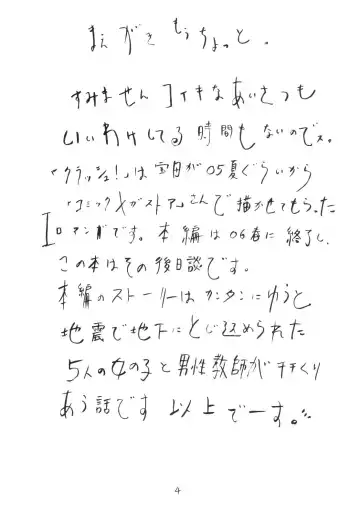 まえがきもうちょっと。
すみません コイキなあいさつも
いいわけしてる時間もないのでス。
「クラッシュ!」は宝目が05夏ぐらいから
「コミックメガストア」さんで描かせてもらった
エロマンガです。本編は06春に終了し、
この本はその後日談です。
本編のストーリーはカンタンにゆうと
地震で地下にとじ込められた
5人の女の子と男性教師がチチくり
あう話です 以上でーす。
4